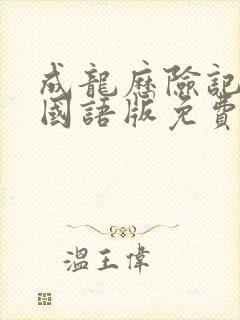 成龍歷險記
國語版免費
溫王偉